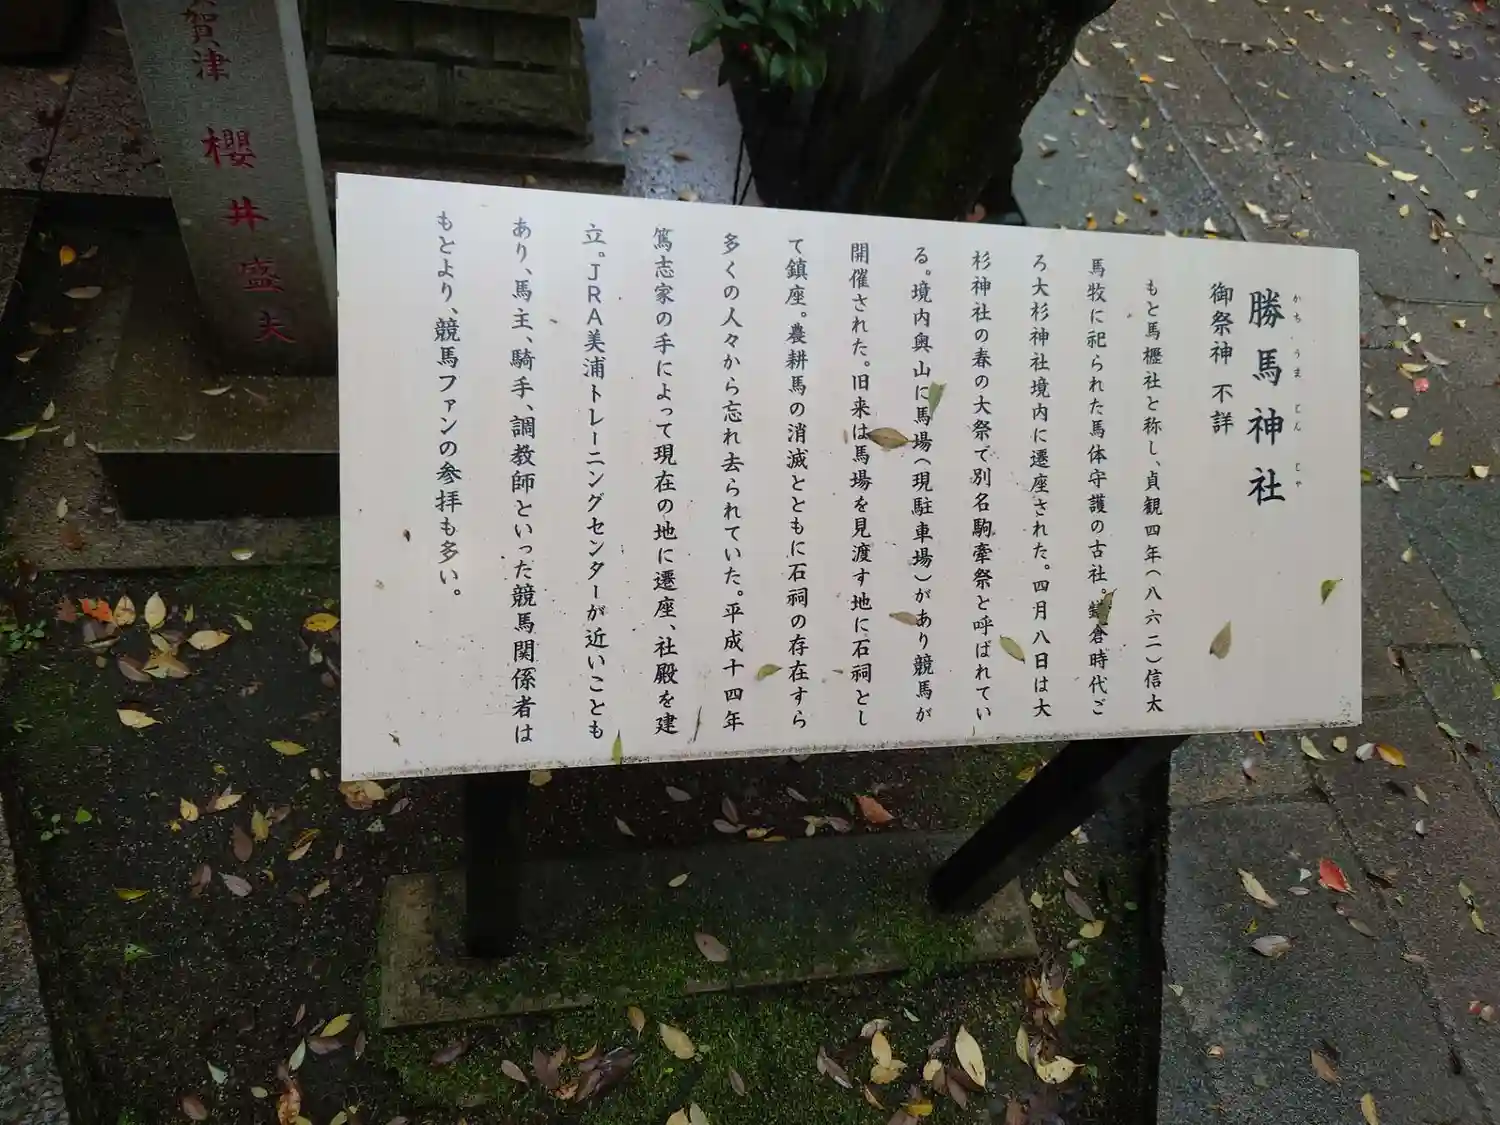 勝馬神社
かち うま じん じゃ
御祭神 不詳
もと馬櫪社と称し、貞観四年(八六二)信太
馬牧に祀られた馬体守護の古社。鎌倉時代ご
ろ大杉神社境内に遷座された。四月八日は大
杉神社の春の大祭で別名駒牽祭と呼ばれてい
る。境内奥山に馬場(現駐車場)があり競馬が
開催された。旧来は馬場を見渡す地に石祠とし
て鎮座。農耕馬の消滅とともに石祠の存在すら
多くの人々から忘れ去られていた。平成十四年
篤志家の手によって現在の地に遷座、社殿を建
立。JRA美浦トレーニングセンターが近いことも
あり、馬主、騎手、調教師といった競馬関係者は
もとより、競馬ファンの参拝も多い。
賀津 櫻井盛夫